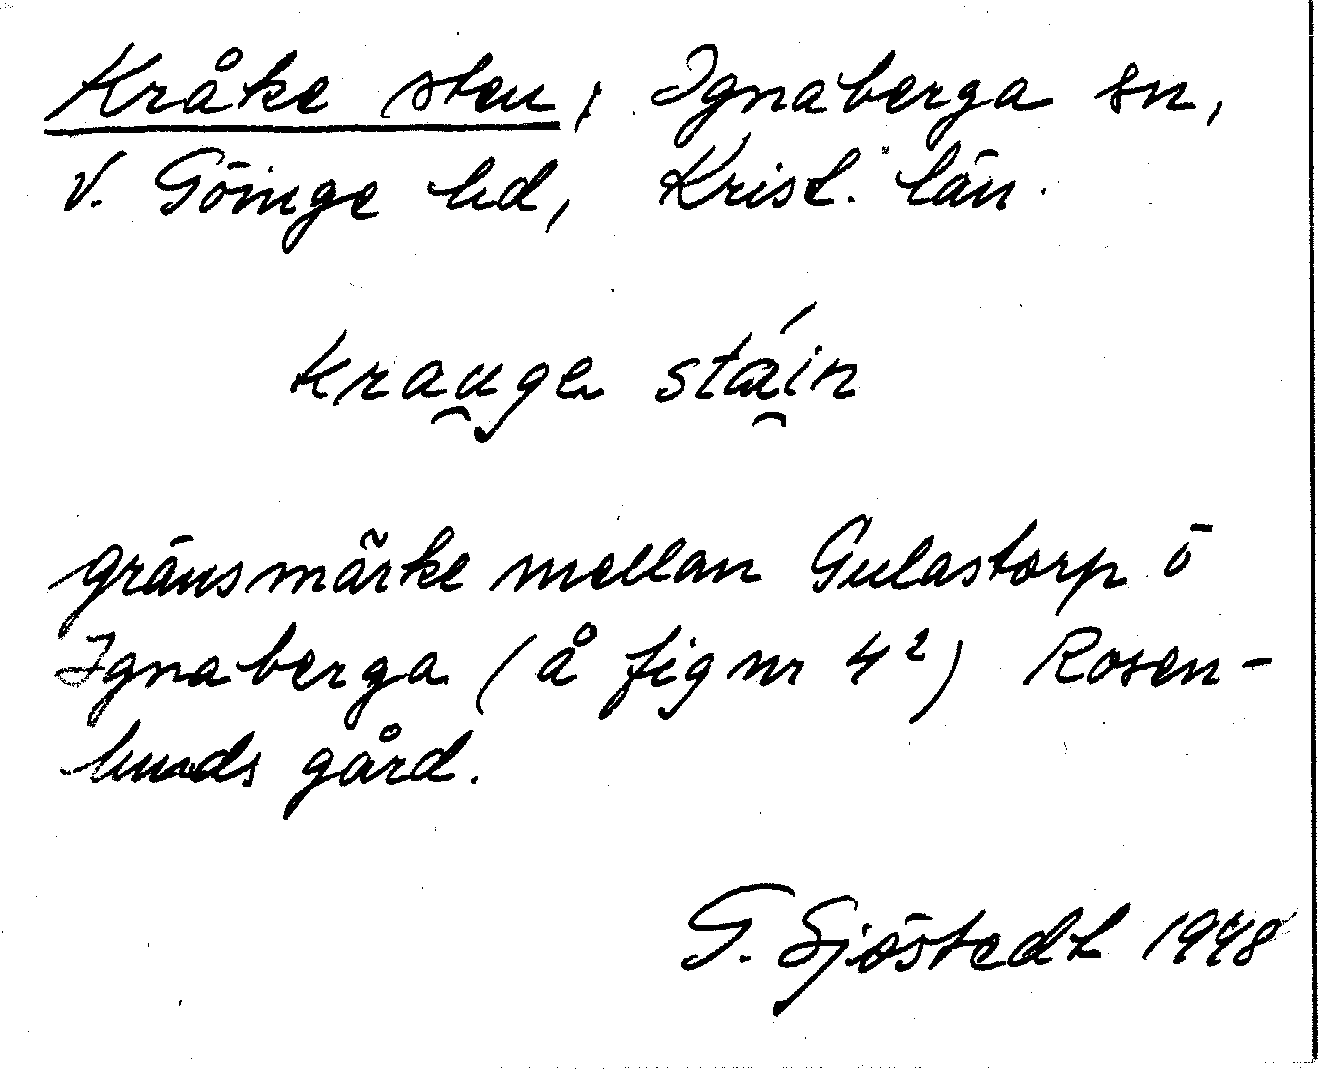 Kråke sten, Ignaberga sn,
V. Göinge hd, Krist. län.
krau̯ge stái̯n
gränsmärke mellan Gulastorp ö
Ignaberga (å fig nr 4²) Rosen-
lunds gård.
G. Sjöstedt 1948